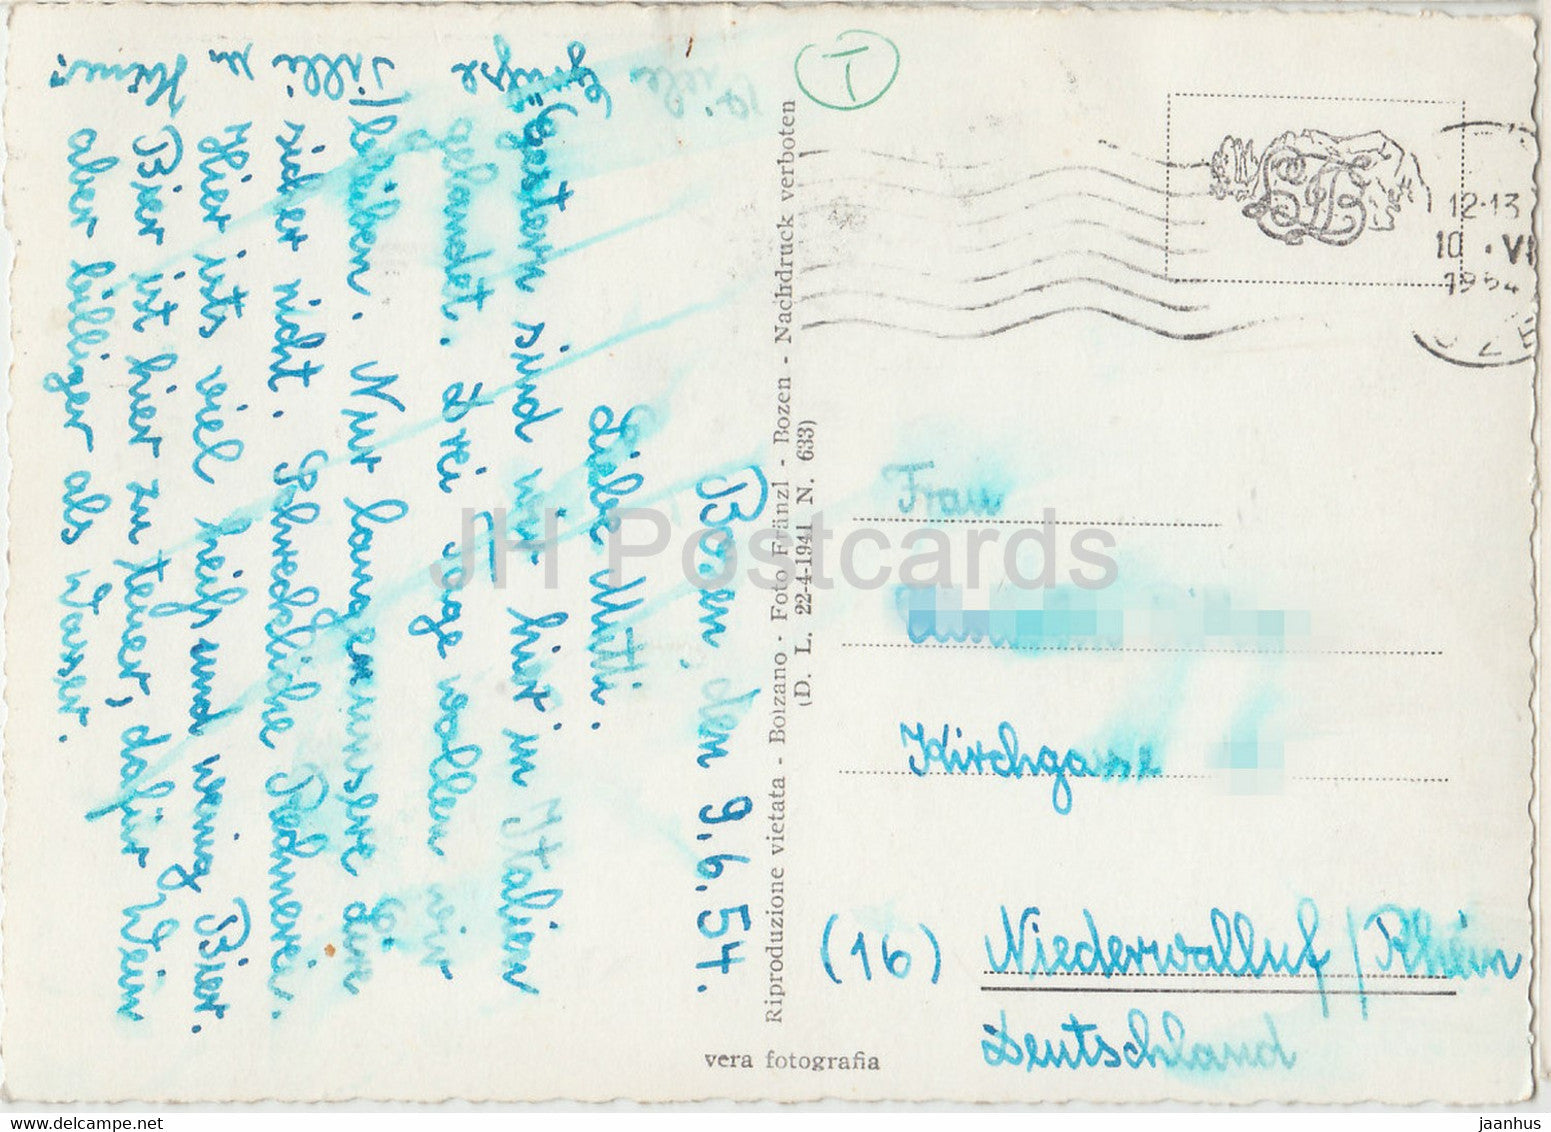 Bozen, den 9.6.54.
Liebe Mutti.
Gestern sind wir hier in Italien
gelandet. Drei Tage wollen wir
bleiben. Nur langen unsere Lire
sicher nicht. Schreckliche Rechnerei.
Hier ists viel heiß und wenig Bier.
Bier ist hier zu teuer, dafür Wein
aber billiger als Wasser.
Viele
Grüße
Willi u.
Riproduzione vietata - Bolzano - Foto Fränzl - Bozen - Nachdruck verboten
(D. L. 22-4-1941 N. 633)
vera fotografia
T
12·13
10 · VI
1954
OZE
Frau
Kirchgasse
(16) Niederwalluf / Rhein
Deutschland
JH Postcards
www.delcampe.net
jaanhus